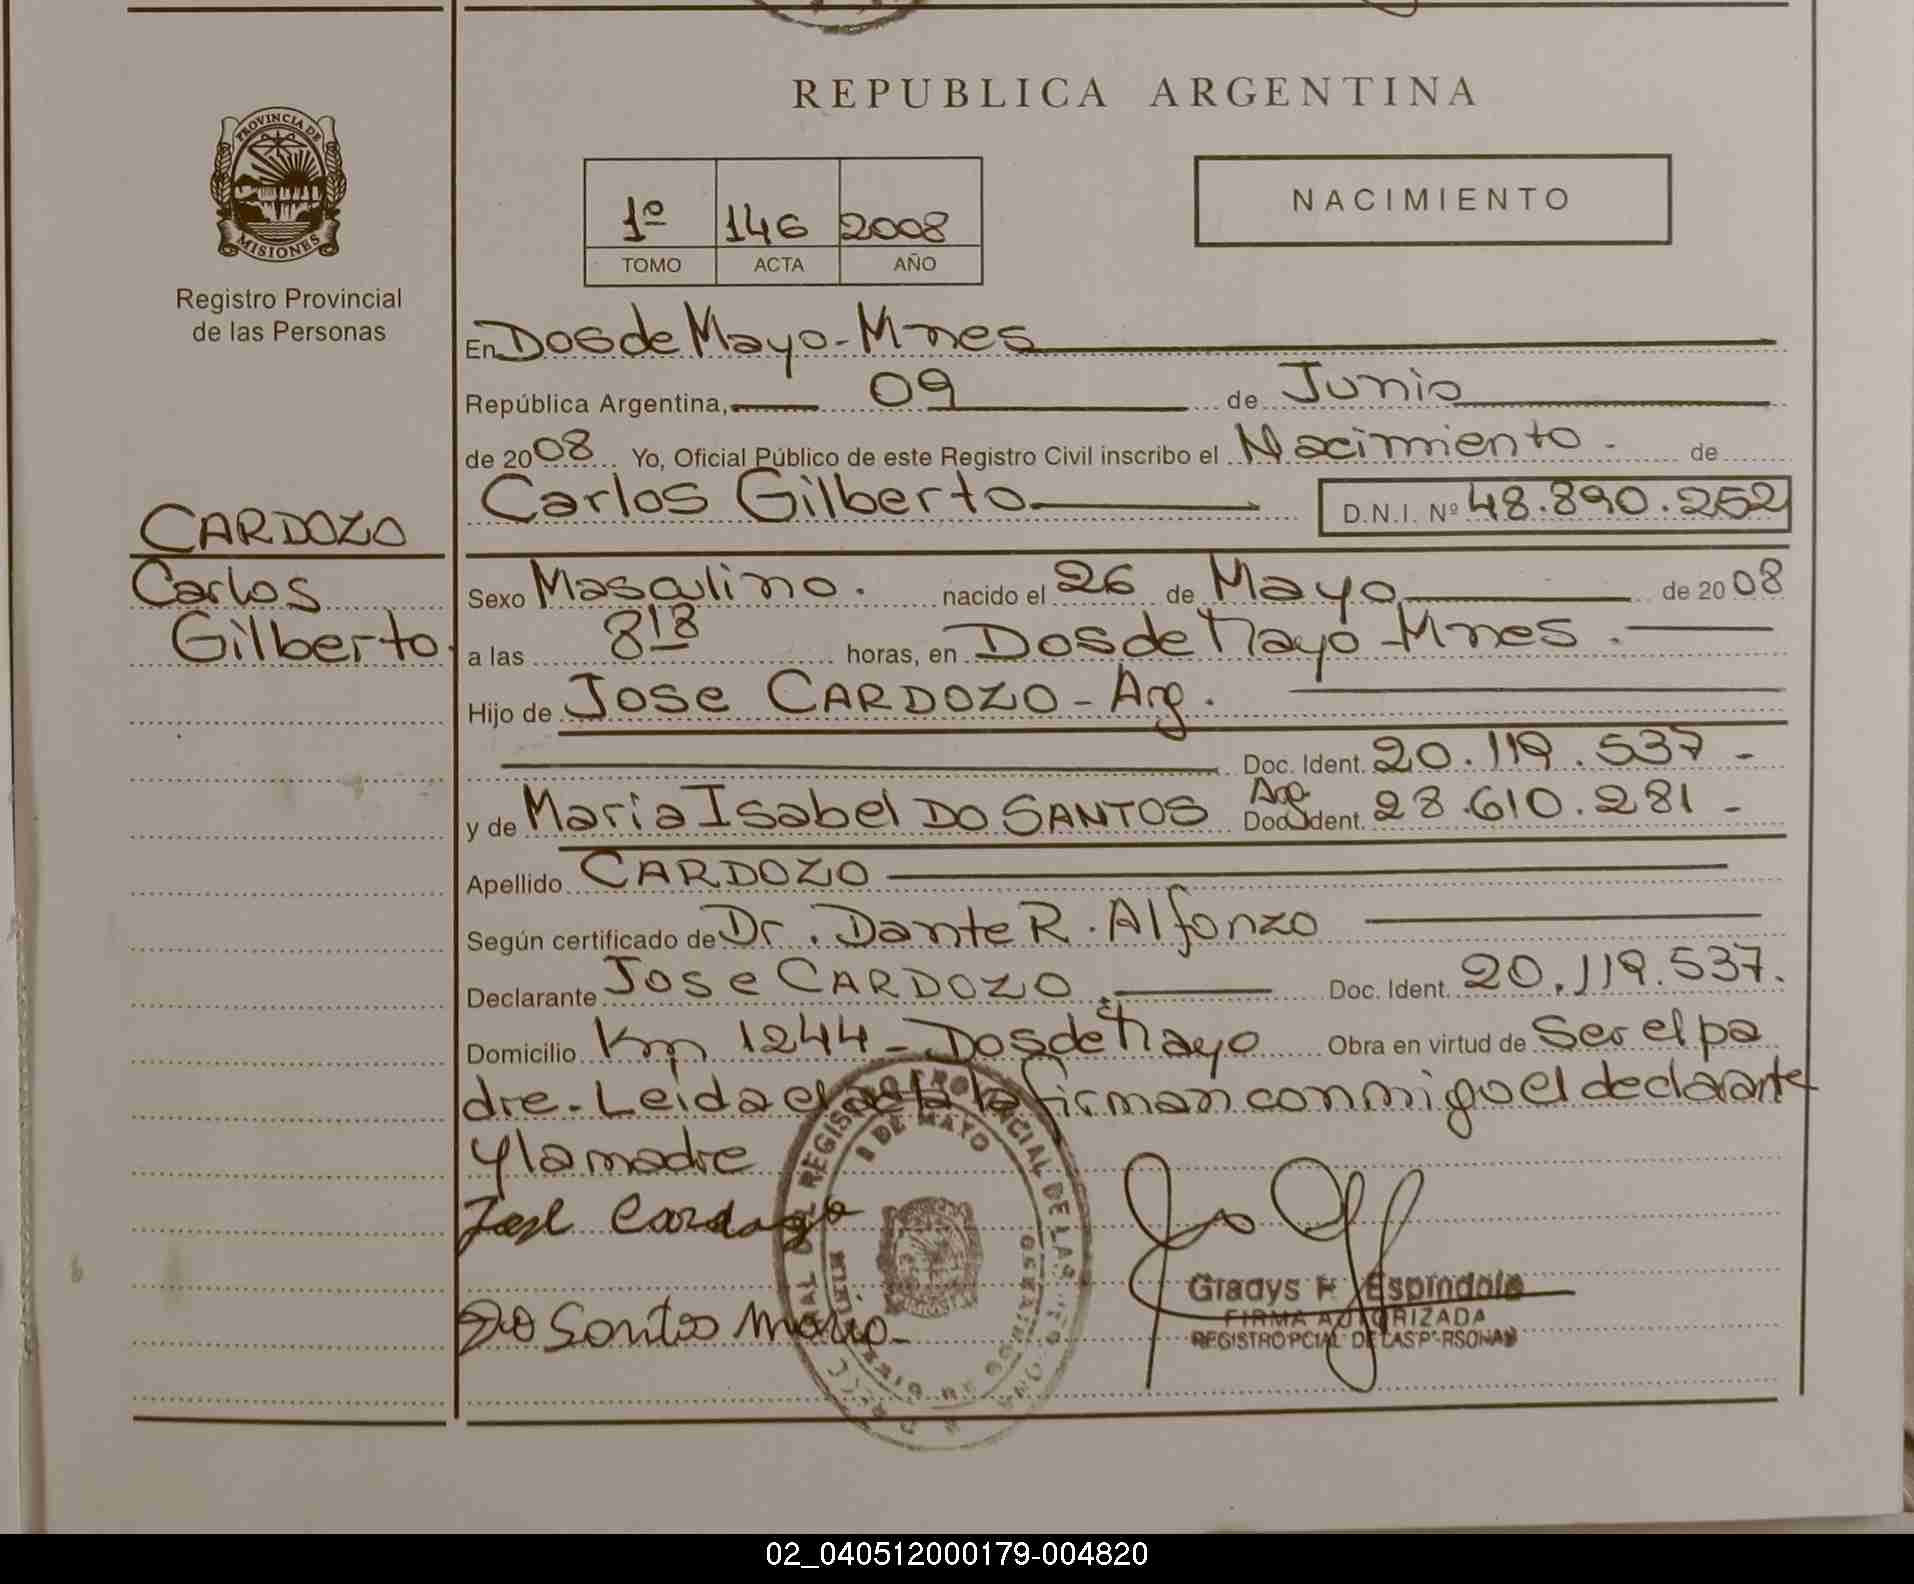 REPUBLICA ARGENTINA
PROVINCIA DE
MISIONES
Registro Provincial
de las Personas
1º 146 2008
TOMO ACTA AÑO
NACIMIENTO
En Dos de Mayo - Mnes
República Argentina, 09 de Junio
de 2008 Yo, Oficial Público de este Registro Civil inscribo el Nacimiento - de
Carlos Gilberto D.N.I. Nº 48.890.252
CARDOZO
Carlos
Gilberto.
Sexo Masculino. nacido el 26 de Mayo de 2008
a las 8 18 horas, en Dos de Mayo - Mnes.
Hijo de Jose CARDOZO - Arg.
Doc. Ident. 20.119.537 -
y de Maria Isabel DO SANTOS Arg. Doc. Ident. 28.610.281 -
Apellido CARDOZO
Según certificado de Dr. Dante R. Alfonzo
Declarante Jose CARDOZO Doc. Ident. 20.119.537.
Domicilio Km 1244 - Dos de Mayo Obra en virtud de Ser el pa
dre. - Leida el acta la firman conmigo el declarante
y la madre
José Cardozo
Do Santos Maria -
REGISTRO PROVINCIAL DE LAS
DE MAYO
Gladys H. Espindola
FIRMA AUTORIZADA
REGISTRO PCIAL DE LAS P RSONAS
02_040512000179-004820